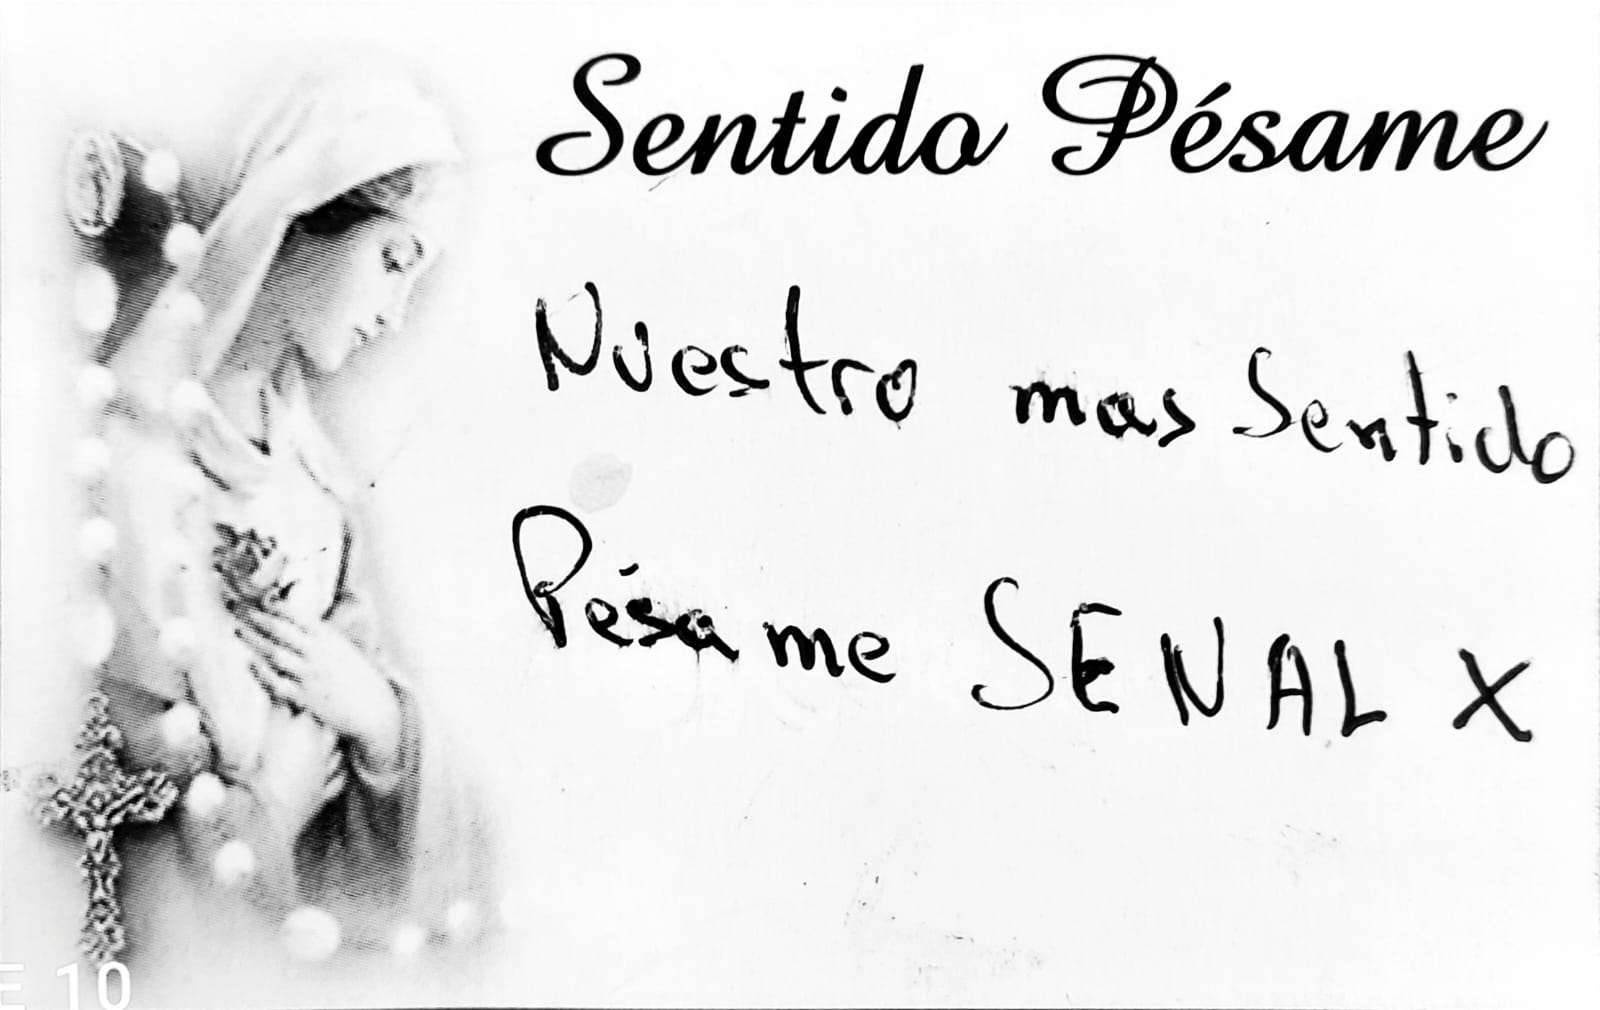 Sentido Pésame
Nuestro mas Sentido
Pésame SENAL X
E 10